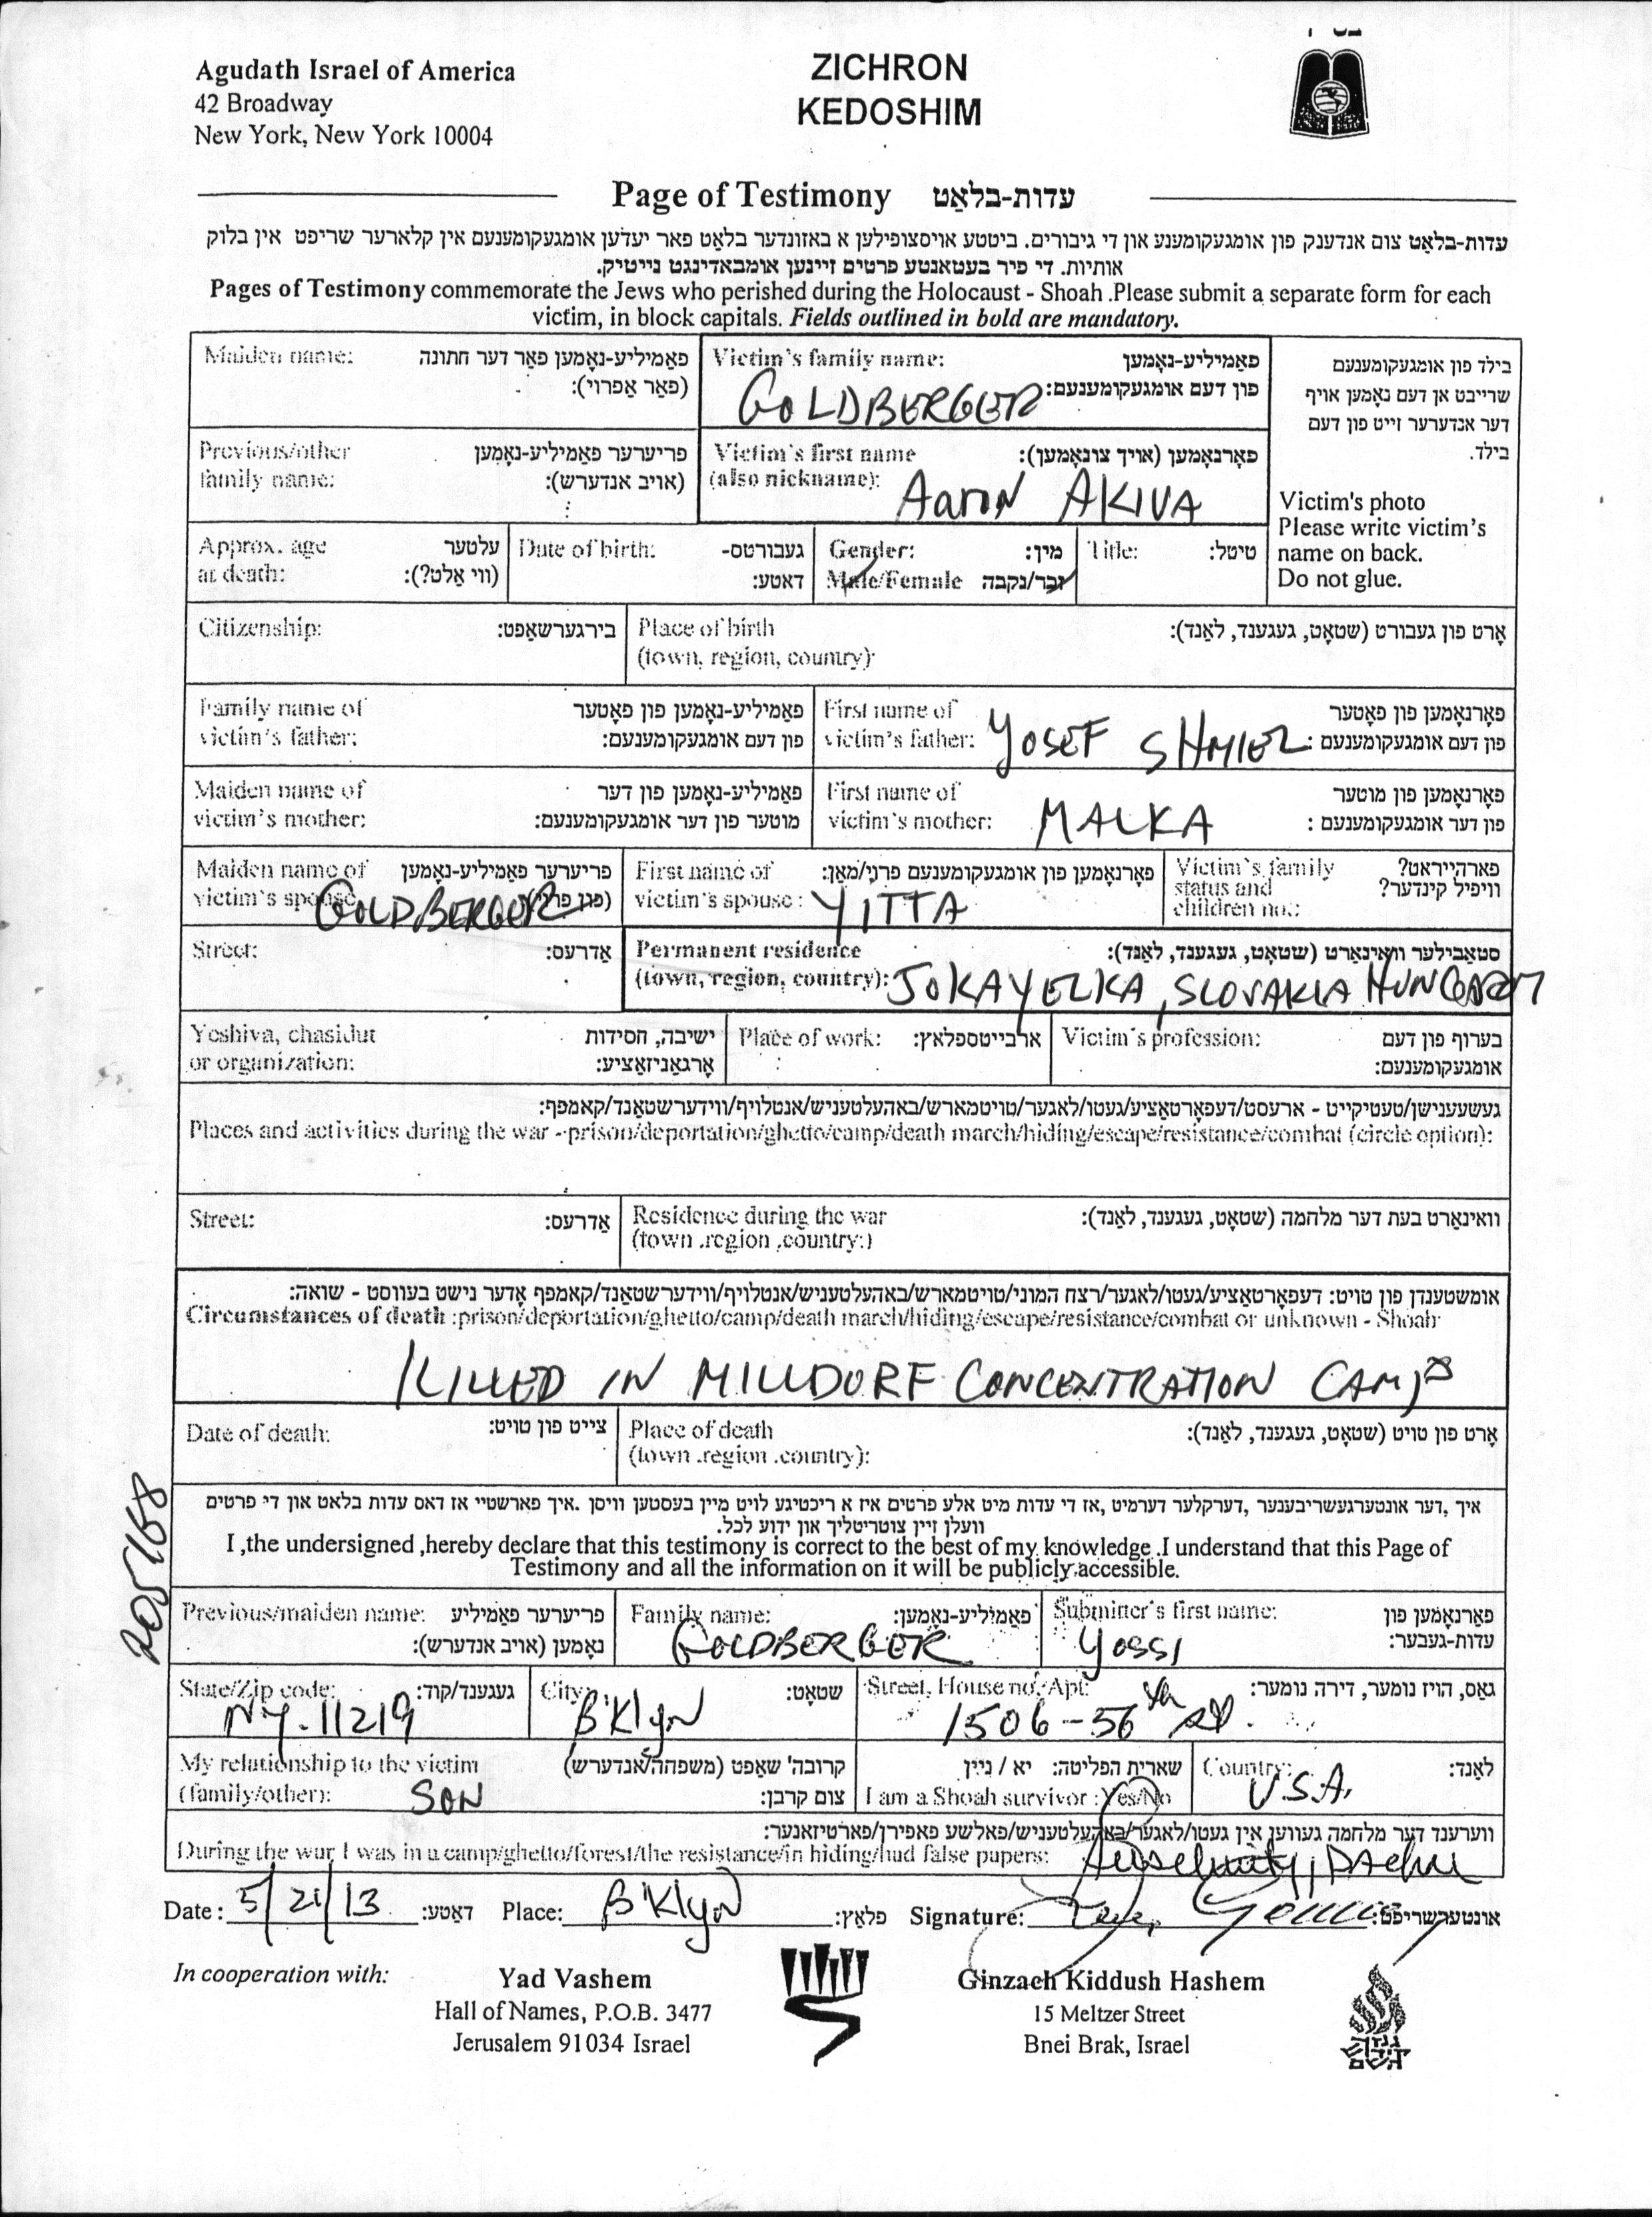 Agudath Israel of America
42 Broadway
New York, New York 10004
ZICHRON
KEDOSHIM
Page of Testimony עדות-בלאַט
עדות-בלאַט צום אנדענק פון אומגעקומענע און די גיבורים. ביטטע אויסצופילען א באזונדער בלאַט פאר יעדען אומגעקומענעם אין קלארער שריפט אין בלוק
אותיות. די פיר בעטאנטע פרטים זיינען אומבאדינגט נייטיק.
Pages of Testimony commemorate the Jews who perished during the Holocaust - Shoah .Please submit a separate form for each
victim, in block capitals. Fields outlined in bold are mandatory.
Maiden name: פאַמיליע-נאָמען פאַר דער חתונה
(פאַר אַפרוי):
Victim's family name: פאַמיליע-נאָמען
פון דעם אומגעקומענעם: GOLDBERGER
בילד פון אומגעקומענעם
שרייבט אן דעם נאָמען אויף
דער אנדערער זייט פון דעם
בילד.
Previous/other פריערער פאַמיליע-נאָמען
family name: (אויב אנדערש):
Victim's first name פאָרנאָמען (אויך צונאָמען):
(also nickname): Aaron AKIVA
Victim's photo
Please write victim's
name on back.
Do not glue.
Approx. age עלטער
at death: (ווי אַלט?):
Date of birth: געבורטס-
דאטע:
Gender: מין:
Male/Female זכר/נקבה
Title: טיטל:
Citizenship: בירגערשאַפט:
Place of birth אָרט פון געבורט (שטאָט, געגענד, לאַנד):
(town, region, country):
Family name of פאַמיליע-נאָמען פון פאָטער
victim's father: פון דעם אומגעקומענעם:
First name of פאָרנאָמען פון פאָטער
victim's father: YOSEF SHMIEL פון דעם אומגעקומענעם:
Maiden name of פאַמיליע-נאָמען פון דער
victim's mother: מוטער פון דער אומגעקומענעם:
First name of פאָרנאָמען פון מוטער
victim's mother: MALKA פון דער אומגעקומענעם :
Maiden name of פריערער פאַמיליע-נאָמען
victim's spouse GOLDBERGER
First name of פאָרנאָמען פון אומגעקומענעם פרוי/מאַן:
victim's spouse : YITTA
Victim's family פארהייראט?
status and וויפיל קינדער?
children no.:
Street: אַדרעס:
Permanent residence סטאַבילער וואוינאָרט (שטאָט, געגענד, לאַנד):
(town, region, country): JOKAYELKA, SLOVAKIA HUNGARY
Yeshiva, chasidut ישיבה, חסידות
or organization: אָרגאַניזאַציע:
Place of work: ארבייטספלאץ:
Victim's profession: בערוף פון דעם
אומגעקומענעם:
געשעענישן/טעטיקייט - ארעסט/דעפאָרטאַציע/געטו/לאַגער/טויטמארש/באהעלטעניש/אנטלויף/ווידערשטאַנד/קאמפף:
Places and activities during the war - prison/deportation/ghetto/camp/death march/hiding/escape/resistance/combat (circle option):
Street: אַדרעס:
Residence during the war וואינאַרט בעת דער מלחמה (שטאָט, געגענד, לאַנד):
(town .region .country:)
אומשטענדן פון טויט: דעפאָרטאַציע/געטו/לאַגער/רצח המוני/טויטמארש/באהעלטעניש/אנטלויף/ווידערשטאַנד/קאמפף אָדער נישט בעווסט - שואה:
Circumstances of death :prison/deportation/ghetto/camp/death march/hiding/escape/resistance/combat or unknown - Shoah
KILLED IN MILLDORF CONCENTRATION CAMP
Date of death: צייט פון טויט:
Place of death אָרט פון טויט (שטאָט, געגענד, לאַנד):
(town .region .country):
איך ,דער אונטערגעשריבענער ,דערקלער דערמיט ,אז די עדות מיט אלע פרטים איז א ריכטיגע לויט מיין בעסטען וויסן .איך פארשטיי אז דאס עדות בלאט און די פרטים
וועלן זיין צוטריטליך און ידוע לכל.
I ,the undersigned ,hereby declare that this testimony is correct to the best of my knowledge .I understand that this Page of
Testimony and all the information on it will be publicly accessible.
205168
Previous/maiden name: פריערער פאַמיליע
נאָמען (אויב אנדערש):
Family name: פאַמיליע-נאָמען:
GOLDBERGER
Submitter's first name: פאָרנאָמען פון
Yossi עדות-געבער:
State/Zip code: געגענד/קוד:
NY. 11219
City: שטאָט:
B'Klyn
Street, House no, Apt: גאס, הויז נומער, דירה נומער:
1506-56th St.
My relationship to the victim קרובה' שאַפט (משפחה/אנדערש)
(family/other): SON צום קרבן:
שארית הפליטה: יא / ניין
I am a Shoah survivor : Yes/No
Country: לאַנד:
U.S.A.
ווערענד דער מלחמה געווען אין געטו/לאגער/באהעלטעניש/פאלשע פאפירן/פארטיזאנער:
During the war I was in a camp/ghetto/forest/the resistance/in hiding/had false papers:
Date : 5/21/13 דאַטע: Place: B'Klyn פלאַץ: Signature: אונטערשריפט:
In cooperation with:
Yad Vashem
Hall of Names, P.O.B. 3477
Jerusalem 91034 Israel
Ginzach Kiddush Hashem
15 Meltzer Street
Bnei Brak, Israel
גנזך
קידוש
השם